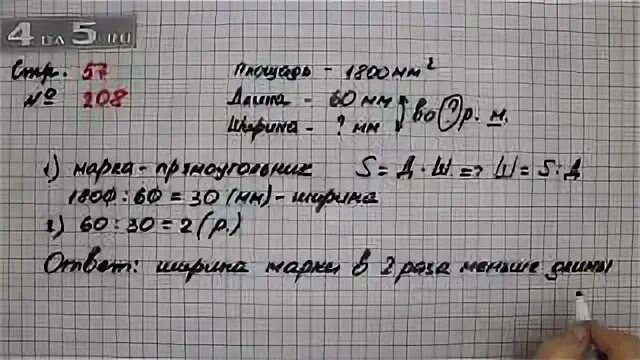 4 на 5 .ru
Стр. 57
№ 208
Площадь - 1800 мм²
Длина - 60 мм
Ширина - ? мм
во ? р. м.
1) марка - прямоугольник S = Д · Ш. => Ш = S : Д
1800 : 60 = 30 (мм) - ширина
2) 60 : 30 = 2 (р.)
Ответ: ширина марки в 2 раза меньше длины